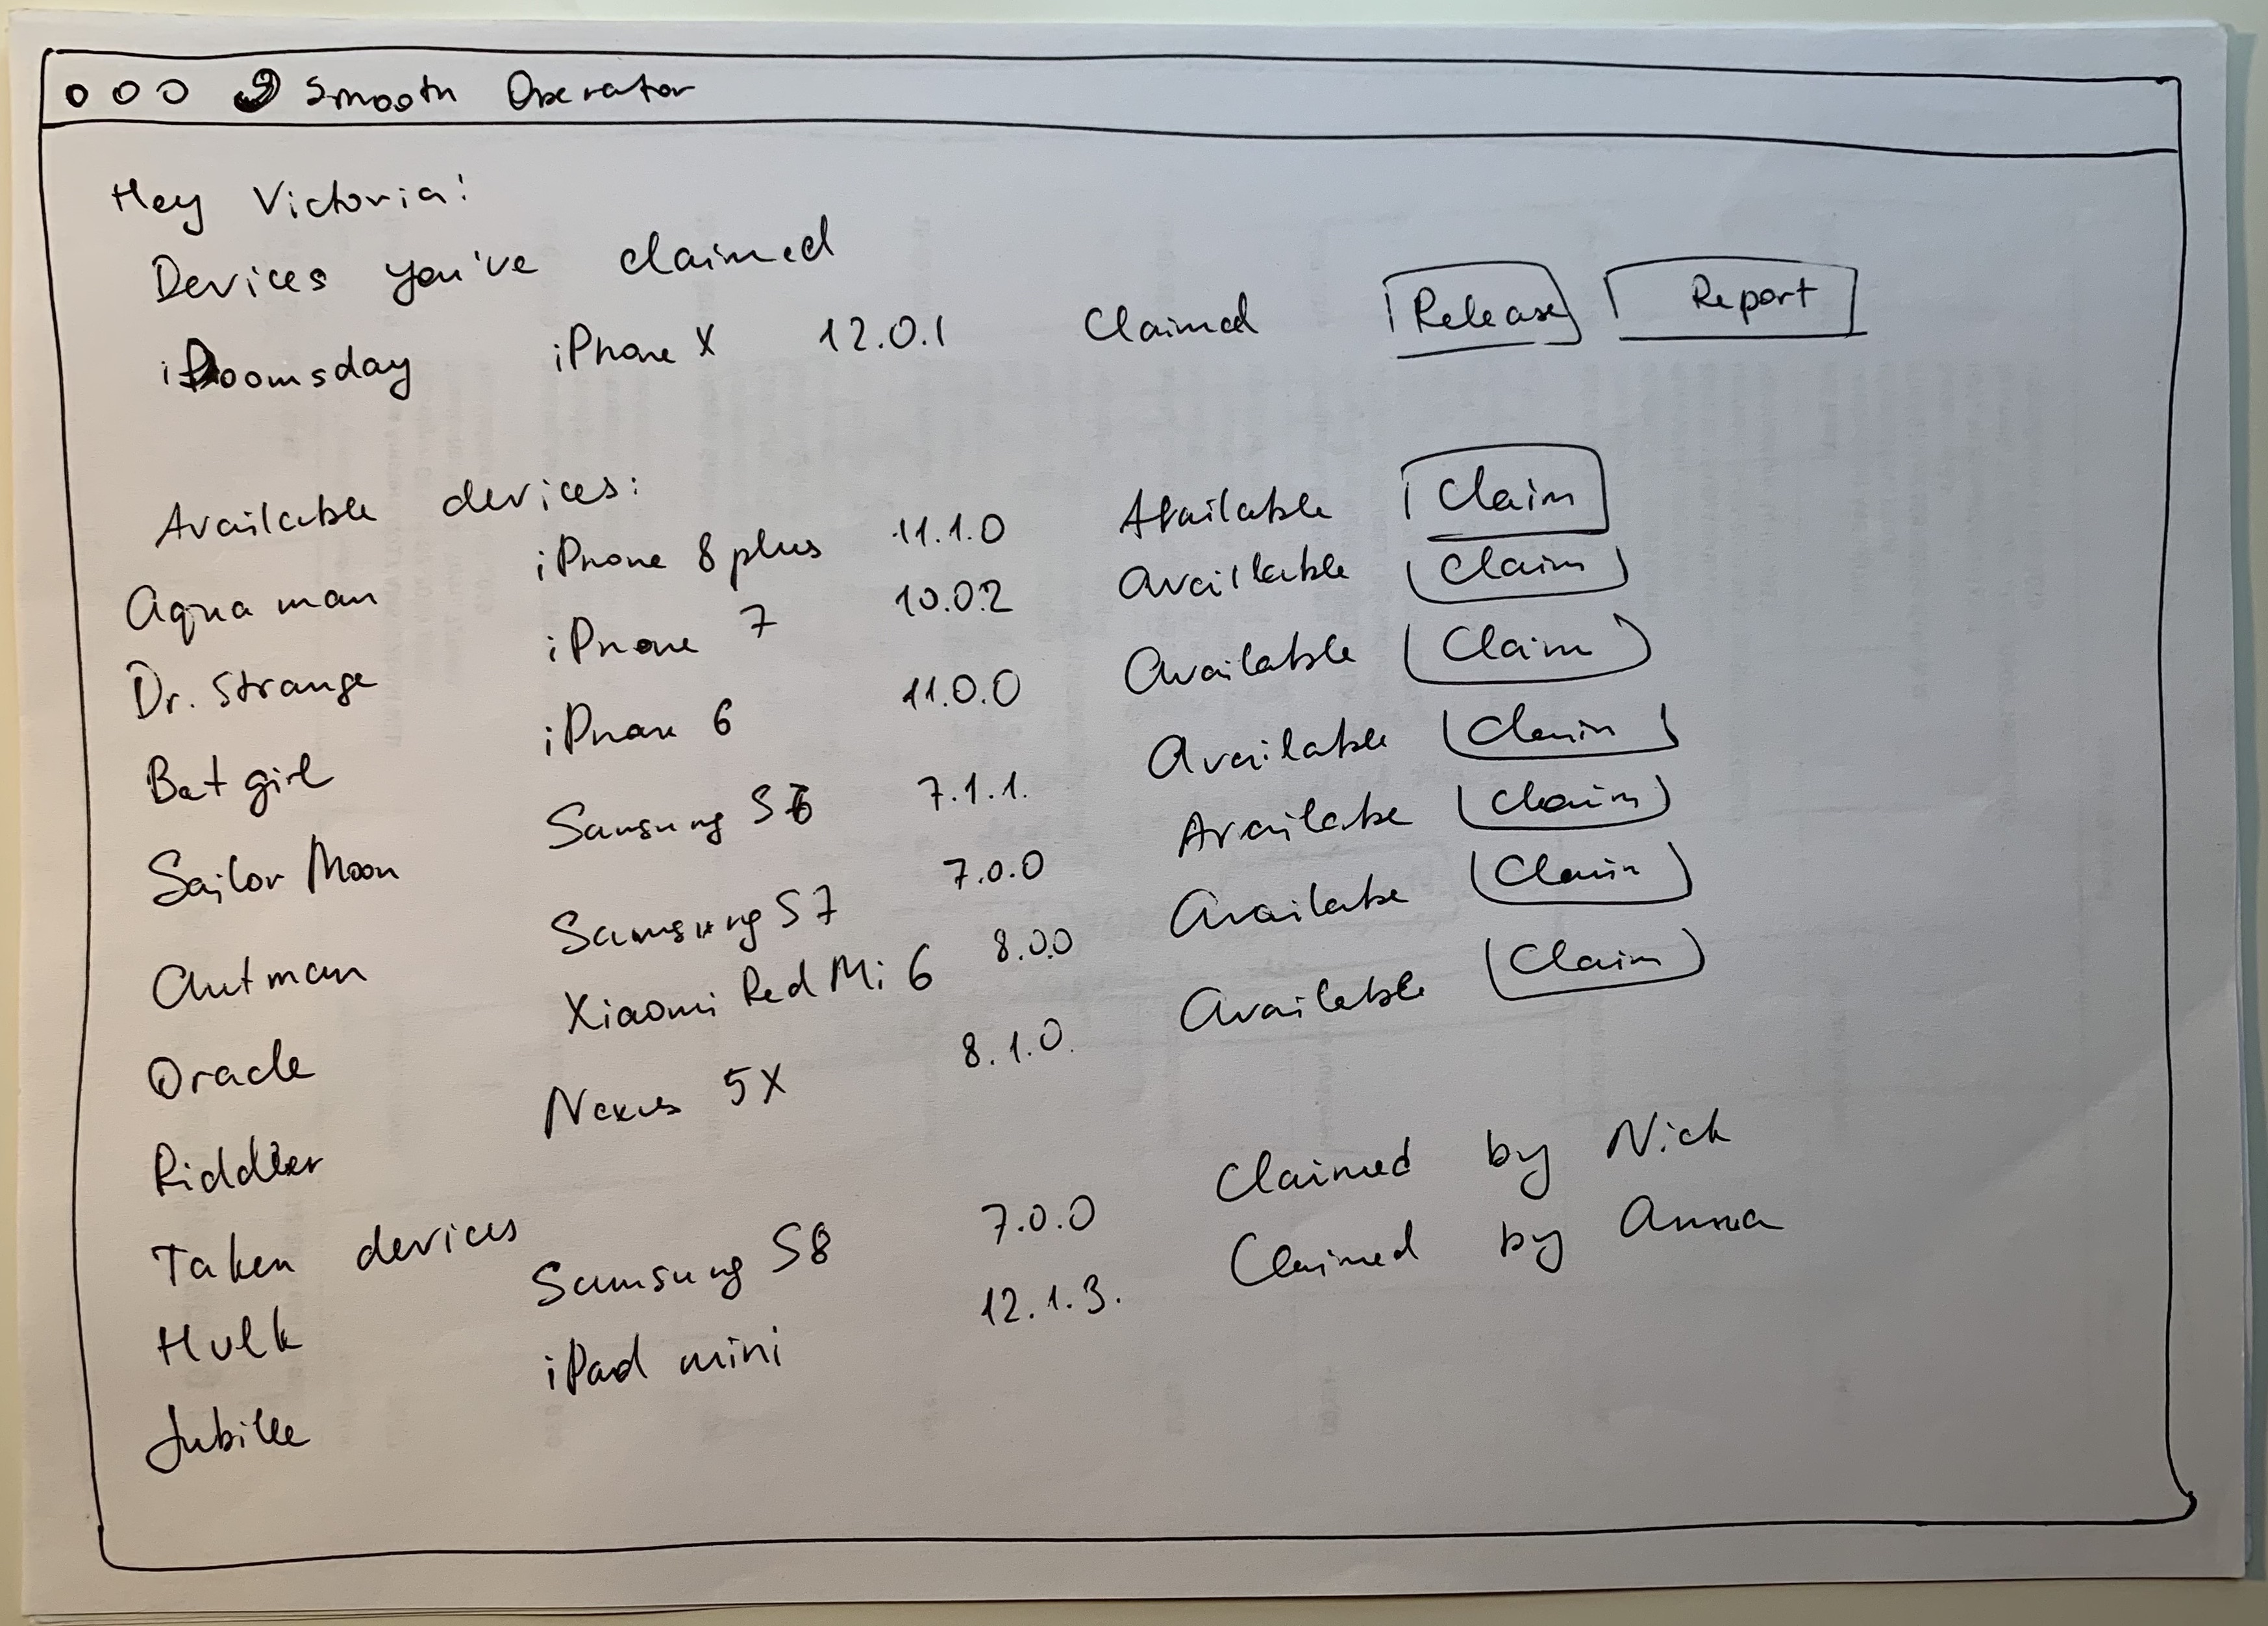 Smooth Operator
Hey Victoria!
Devices you've claimed
iDoomsday iPhone X 12.0.1 Claimed Release Report
Available devices:
Aqua man iPhone 8 plus 11.1.0 Available Claim
Dr. Strange iPhone 7 10.0.2 Available Claim
Bat girl iPhone 6 11.0.0 Available Claim
Sailor Moon Samsung S6 7.1.1. Available Claim
Antman Samsung S7 7.0.0 Available Claim
Oracle Xiaomi Red Mi 6 8.0.0 Available Claim
Riddler Nexus 5X 8.1.0. Available Claim
Taken devices
Hulk Samsung S8 7.0.0 Claimed by Nick
Jubille iPad mini 12.1.3. Claimed by Anna